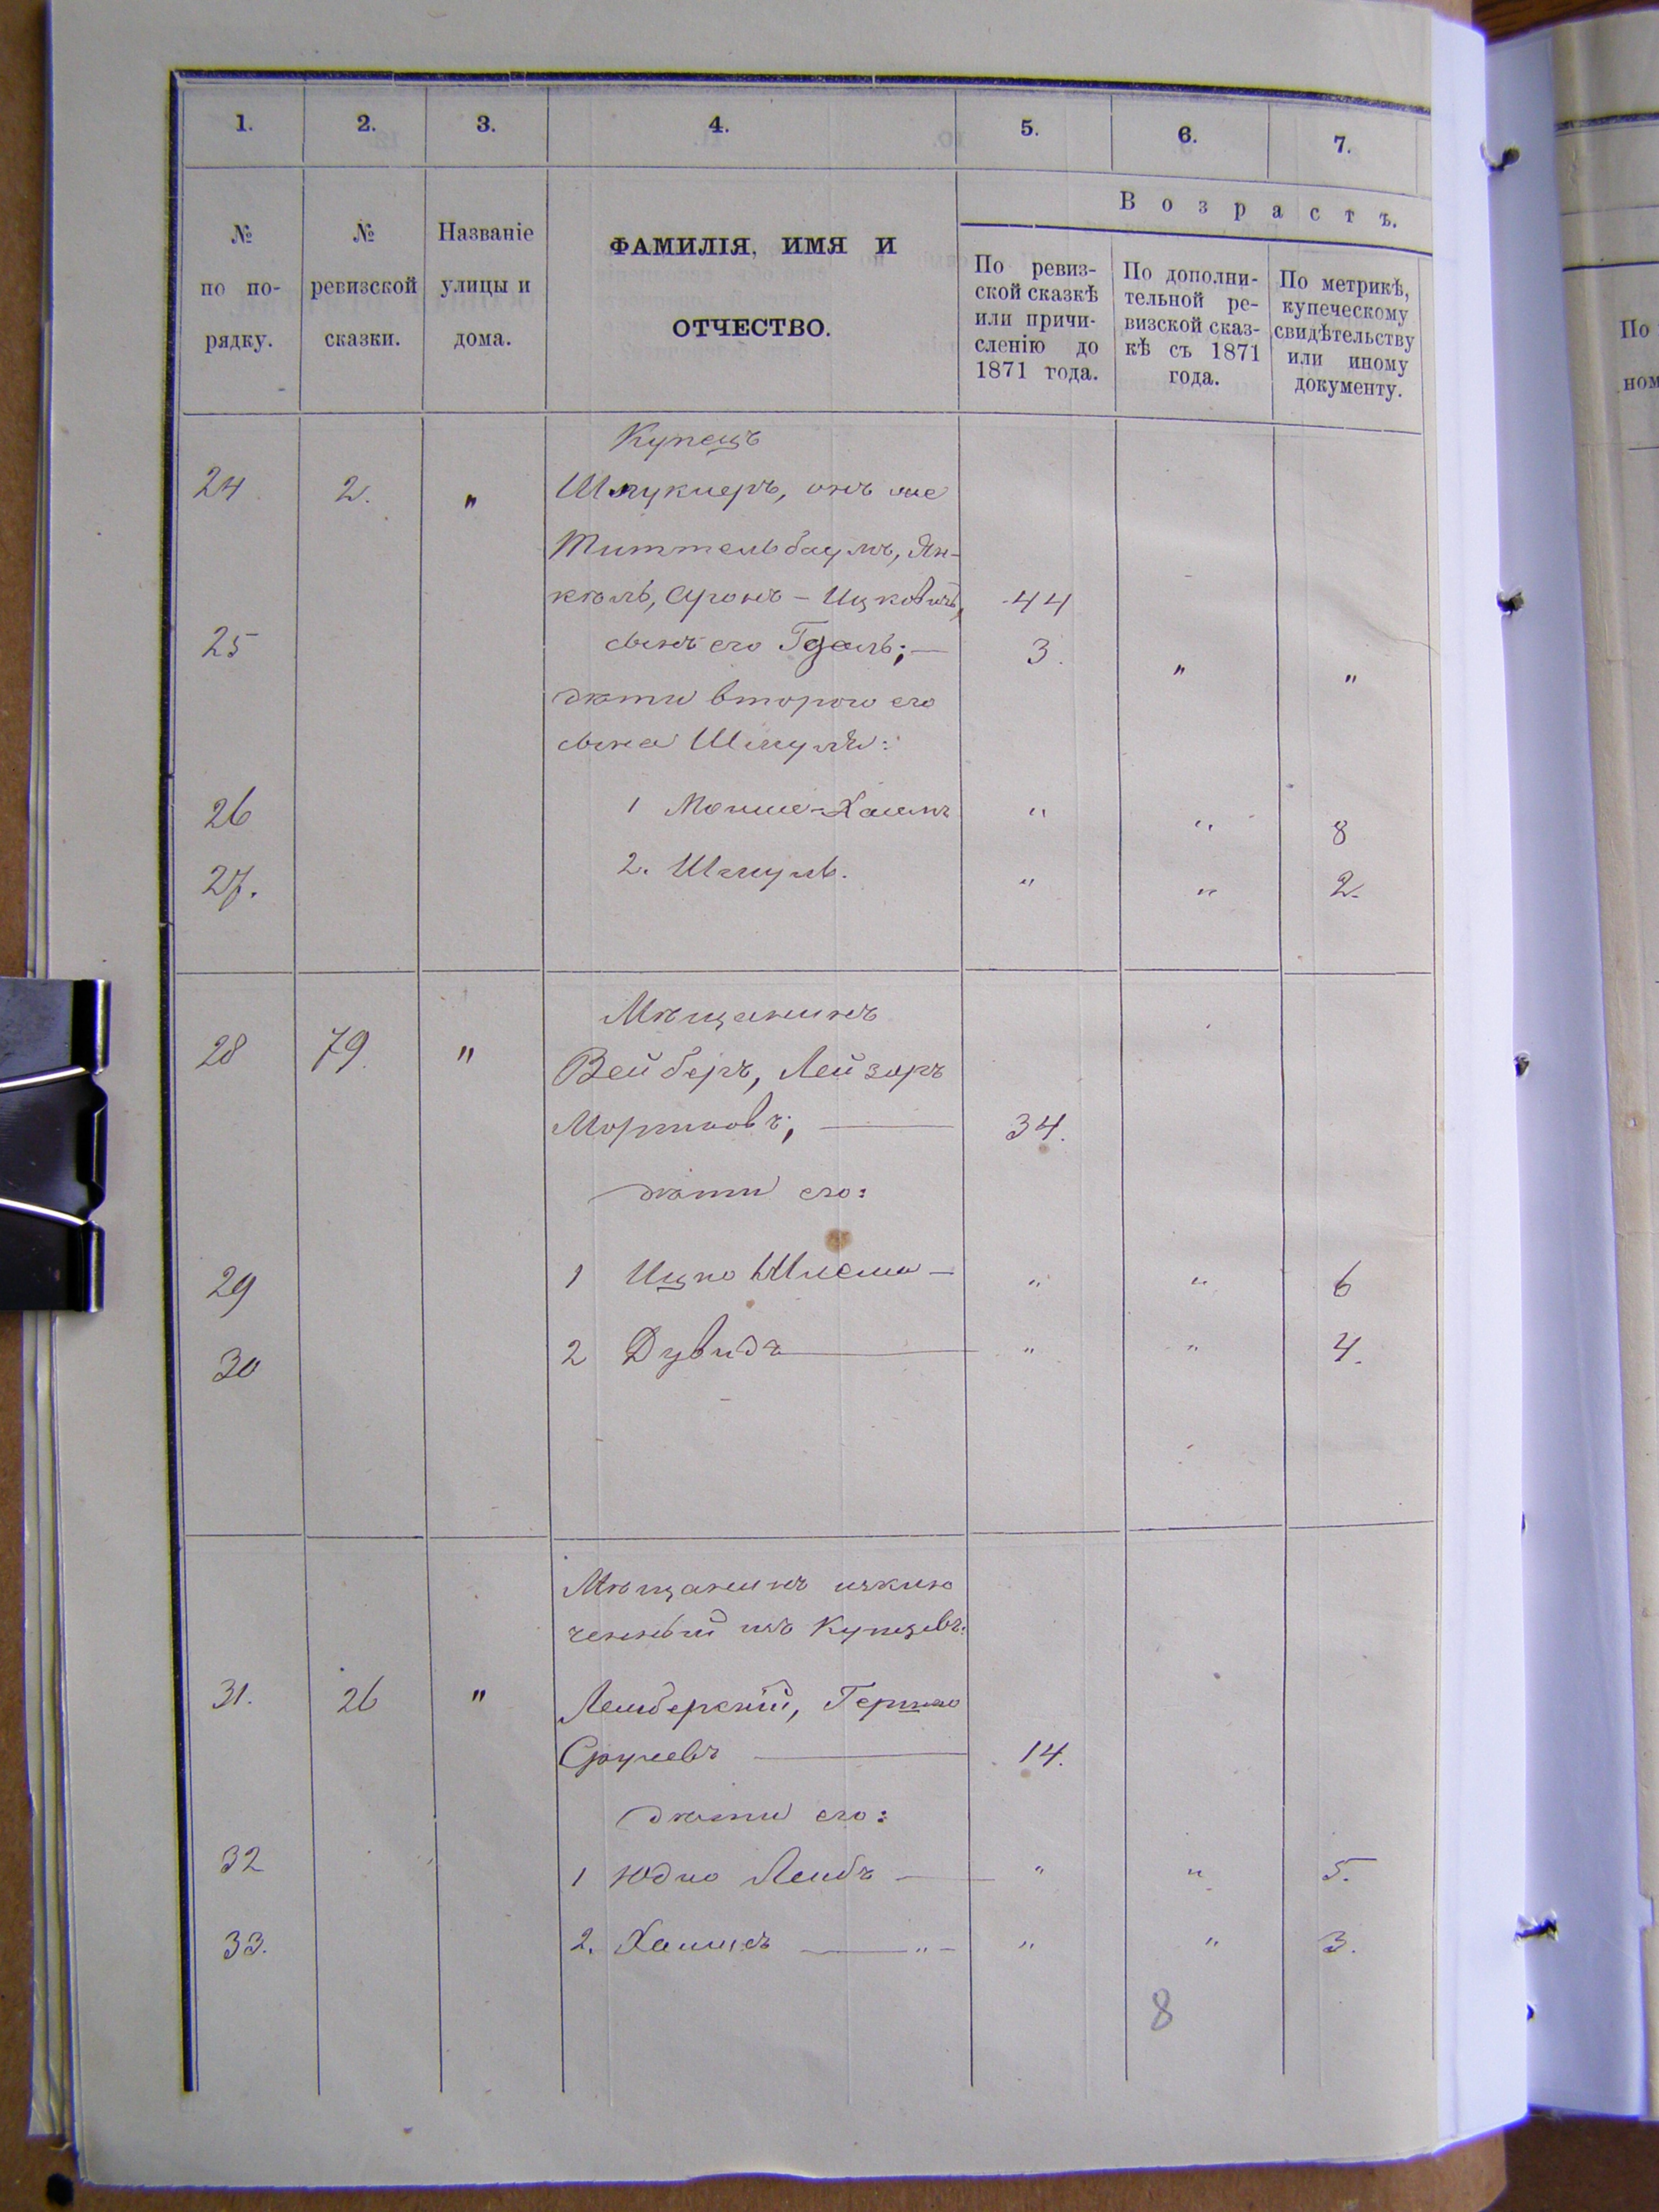 1. 2. 3. 4. 5. 6. 7.
В о з р а с т ъ.
№ по по-рядку.
№ ревизской сказки.
Названіе улицы и дома.
ФАМИЛІЯ, ИМЯ И
ОТЧЕСТВО.
По ревиз-
ской сказкѣ
или причи-
сленію до
1871 года.
По дополни-
тельной ре-
визской сказ-
кѣ съ 1871
года.
По метрикѣ,
купеческому
свидѣтельству
или иному
документу.
Купецъ
24 2. " Шмуклеръ, онъ же
Титтельбаумъ, Ян-
кель, Аронъ-Ицковичъ, 44
25 сынъ его Гдаль; — 3. " "
дѣти второго его
сына Шмуля:
26 1 Мошше-Хаимъ " " 8
27. 2. Шмуль. " " 2.
Мѣщанинъ
28 79. " Вейберъ, Лейзоръ
Мортковъ; — 34.
дѣти его:
29 1 Ицко Шлема — " " 6
30 2 Дувидъ — " " 4.
Мѣщанинъ изклю
ченный изъ Купцовъ:
31. 26 " Лемберскій, Гершко
Срулевъ — 14.
дѣти его:
32 1 Юдко Лейбъ — " " 5.
33. 2. Хаимъ — " — " " 3.
8
По
ном